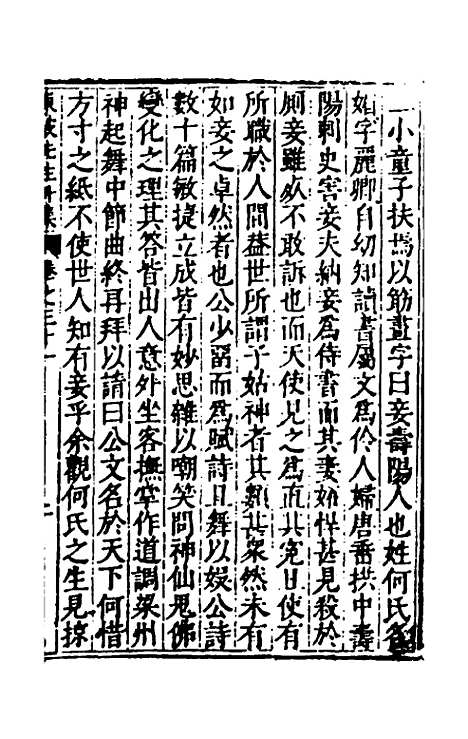 一小童子扶焉以筯畫字曰妾壽陽人也姓何氏名
媚字麗卿自幼知讀書屬文爲伶人婦唐垂拱中壽
陽刺史害妾夫納妾爲侍書而其妻妬悍甚見殺於
厠妾雖死不敢訴也而天使見之爲直其寃且使有
所職於人間葢世所謂子姑神者其類甚衆然未有
如妾之卓然者也公少留而爲賦詩且舞以娛公詩
數十篇敏捷立成皆有妙思雜以嘲笑問神仙鬼佛
變化之理其答皆出人意外坐客撫掌作道調梁州
神起舞中節曲終再拜以請曰公文名於天下何惜
方寸之紙不使世人知有妾乎余觀何氏之生見掠
東坡先生集 卷之三十一